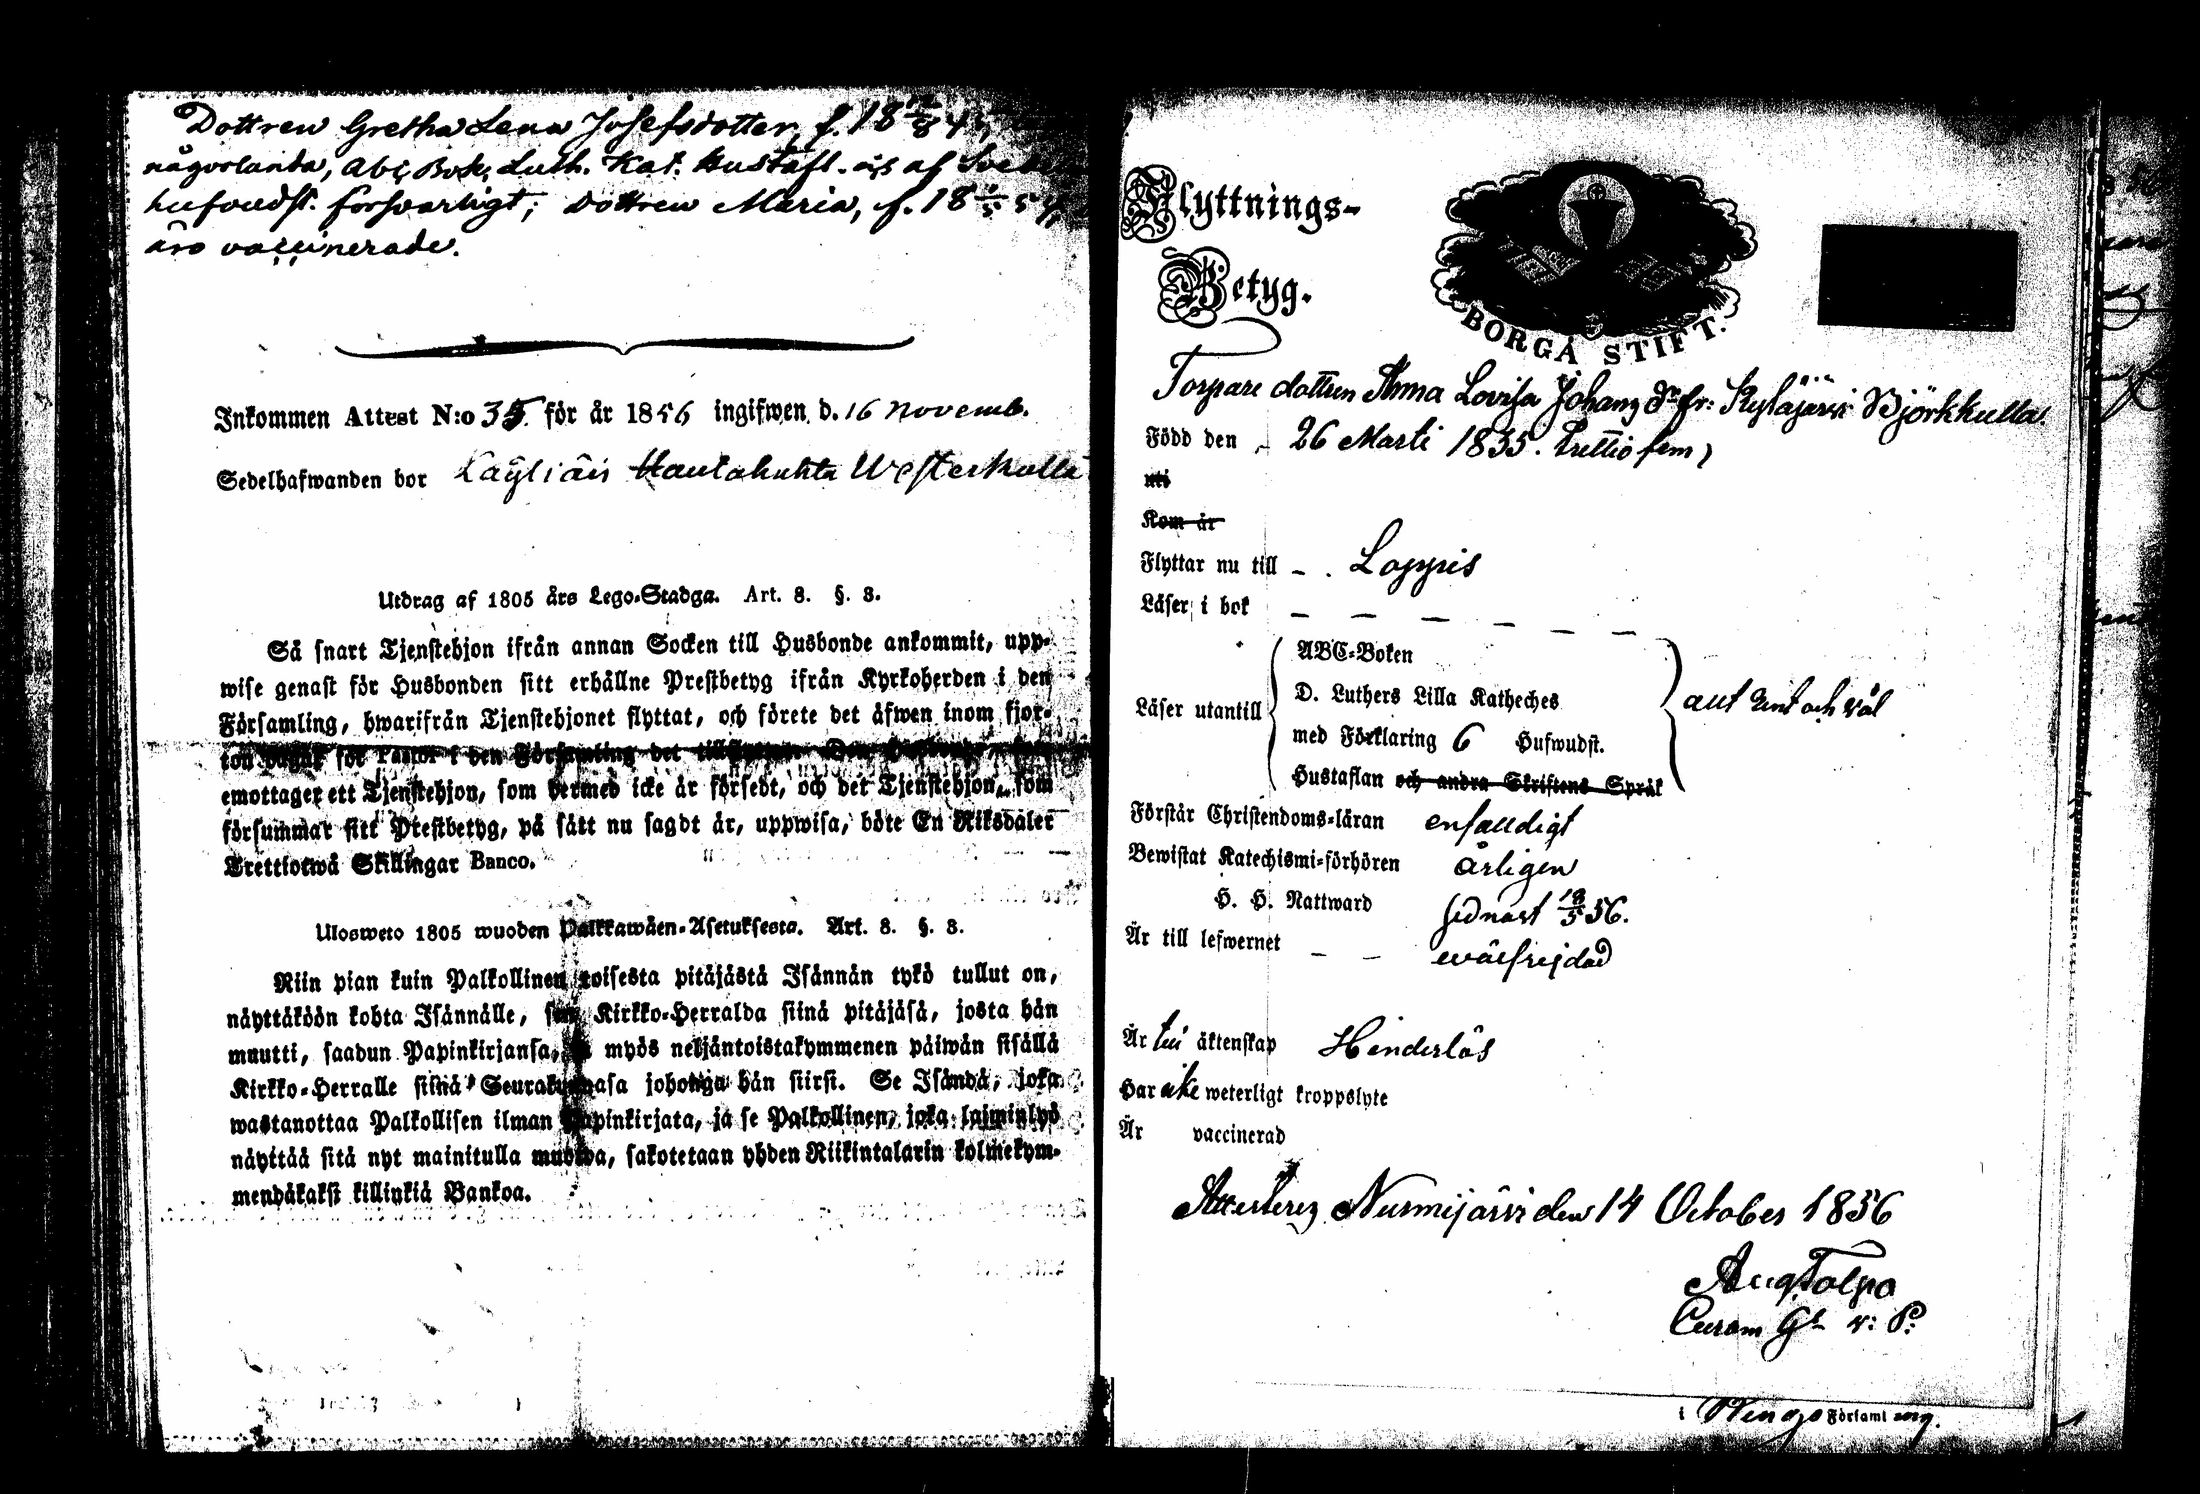 Dottren Gretha Lena Josefsdotter, f. 18 17/8 4
någorlunda, Abc Bok, Luth. Kat. Hustafl. och af Svebe
hufvudst. försvarligt; dottren Maria, f. 18 54,
äro vaccinerade.
Inkommen Attest N:o 35 för år 1856 ingifwen d. 16 Novemb.
Sedelhafwanden bor Käyliäis Hautakuhta Westerkulla
Utdrag af 1805 års Lego-Stadga. Art. 8. §. 3.
Så snart Tjenstehjon ifrån annan Socken till Husbonde ankommit, upp-
wise genast för Husbonden sitt erhållne Prestbetyg ifrån Kyrkoherden i den
Församling, hwarifrån Tjenstehjonet flyttat, och förete det äfwen inom fjor-
ton dagar för Pastor i den Församling det
emottager ett Tjenstehjon, som dermed icke är försedt, och det Tjenstehjon, som
försummar sitt Prestbetyg, på sätt nu sagdt är, uppwisa, böte En Riksdaler
Trettiotwå Skillingar Banco.
Ulosweto 1805 wuoden Palkkawäen-Asetuksesta. Art. 8. §. 3.
Niin pian kuin Palkollinen toisesta pitäjästä Isännän tykö tullut on,
näyttäköön kohta Isännälle, sen Kirkko-Herralda siinä pitäjäsä, josta hän
muutti, saadun Papinkirjansa, ja myös neljäntoistakymmenen päiwän sisällä
Kirkko-Herralle siinä Seurakunnasa johonga hän siirsi. Se Isändä, joka
wastanottaa Palkollisen ilman Papinkirjata, ja se Palkollinen, joka laiminlyö
näyttää sitä nyt mainitulla muodoa, sakotetaan yhden Riikintalarin kolmekym-
mendäkaksi killinkiä Bankoa.
Flyttnings-
Betyg.
BORGÅ STIFT.
Torpare dottren Anna Lovisa Johans dr fr: Kyläjärvi Björkkulla.
Född den 26 Marti 1835. trettio fem
uti
Kom år
Flyttar nu till Loppis
Läser i bok
Läser utantill
ABC-Boken
D. Luthers Lilla Katheches
med Förklaring 6 Hufwudst.
Hustaflan och andra Skriftens Språk
och väl
Förstår Christendoms-läran enfalldigt
Bewistat Katechismi-förhören årligen
H. H. Nattward sednast 18/5 56.
Är till lefwernet wälfrejdad
Är till äktenskap Hinderlös
Har icke weterligt kroppslyte
Är vaccinerad
Attesterez Nurmijärvi den 14 October 1856
Aug Tolpo
i Wenga Församl ing.